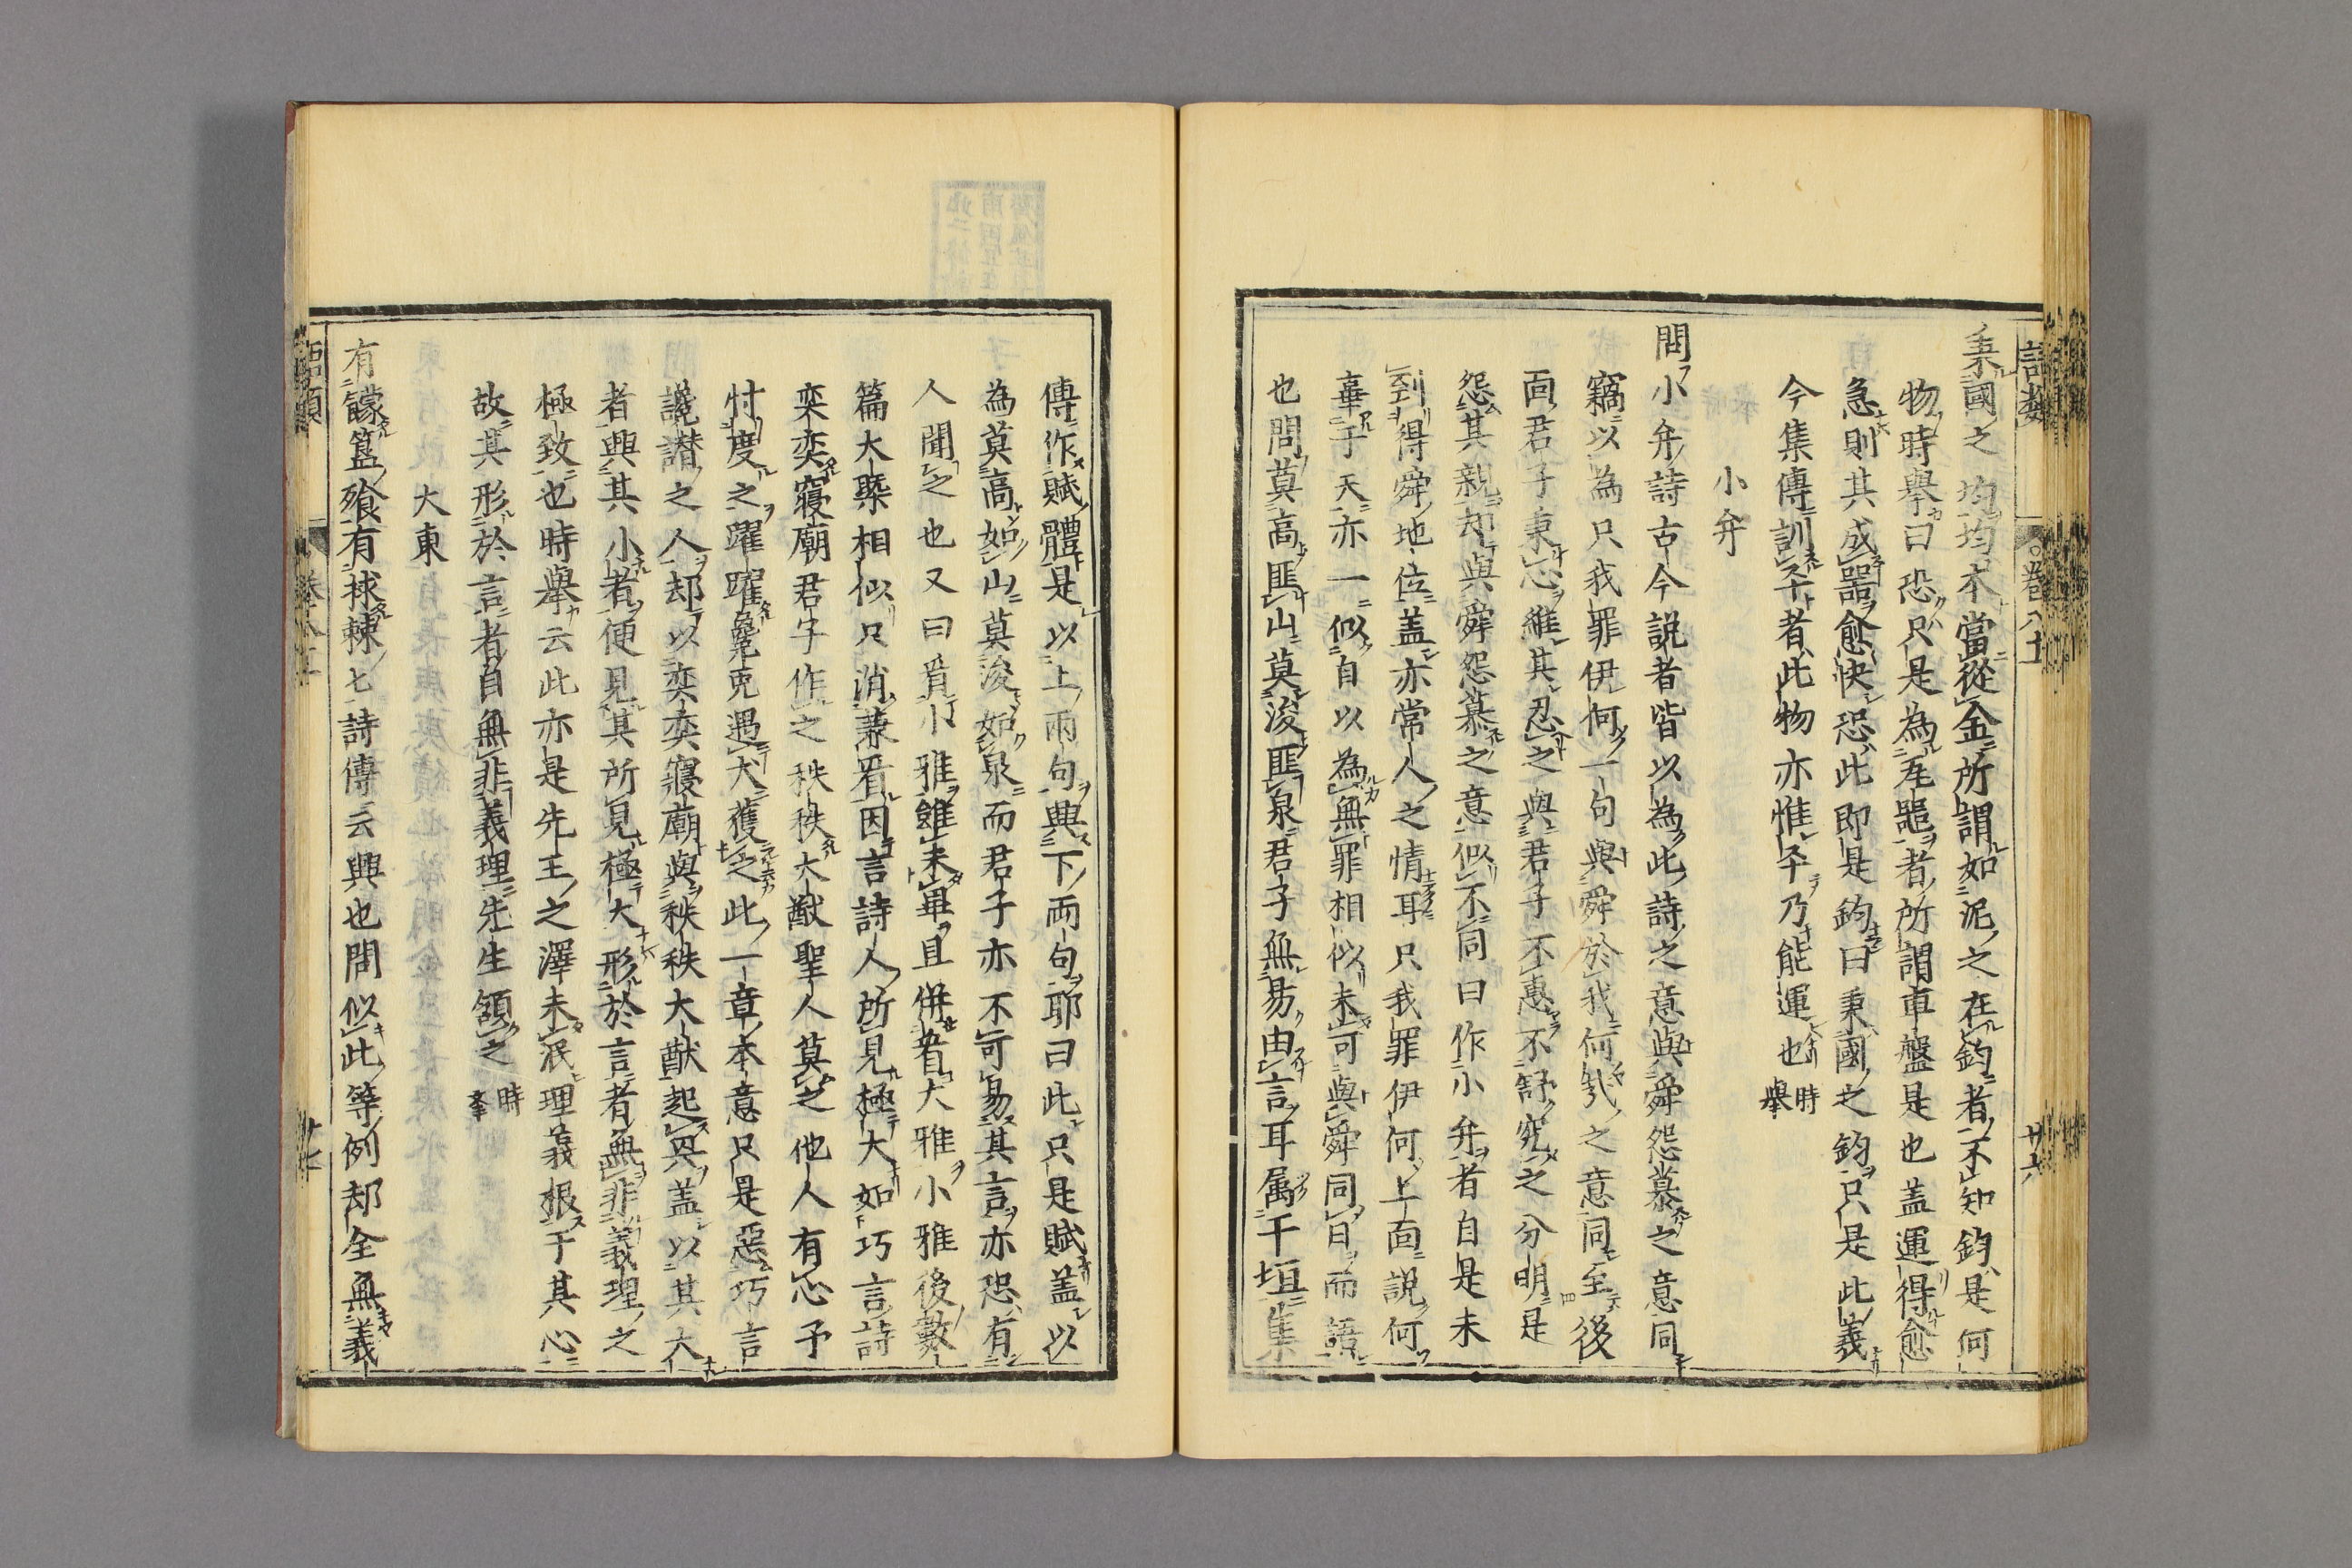 秉國之均均本當從金所謂如泥之在鈞者不知鈞是何
物時擧曰恐只是為瓦噐者所謂車盤是也盖運得愈
急則其成噐愈快恐此即是鈞曰秉國之鈞只是此義
今集傳訓平者此物亦惟平乃能運也時擧
小弁
問小弁詩古今説者皆以為此詩之意與舜怨慕之意同
竊以為只我罪伊何一句與舜於我何哉之意同至後
面君子秉心維其忍之與君子不惠不舒究之分明是
怨其親却與舜怨慕之意似不同曰作小弁者自是未
到得舜地位盖亦常人之情耳只我罪伊何上面説何
辜于天亦一似自以為無罪相似未可與舜同日而語
也問莫高匪山莫浚匪泉君子無易由言耳属于垣集
傳作賦體是以上兩句興下兩句耶曰此只是賦盖以
為莫高如山莫浚如泉而君子亦不可易其言亦恐有
人聞之也又曰看小雅雖未畢且併看大雅小雅後數
篇大槩相似只消兼看因言詩人所見極大如巧言詩
奕奕寢廟君子作之秩秩大猷聖人莫之他人有心予
忖度之躍躍毚兎遇犬獲之此一章本意只是惡巧言
讒譛之人却以奕奕寢廟與秩秩大猷起興盖以其大
者興其小者便見其所見極大形於言者無非義理之
極致也時擧云此亦是先王之澤未泯理義根于其心
故其形於言者自無非義理先生頷之時擧
大東
有饛簋飧有捄棘七詩傳云興也問似此等例却全無義
語類
卷八十一
廿六
廿七